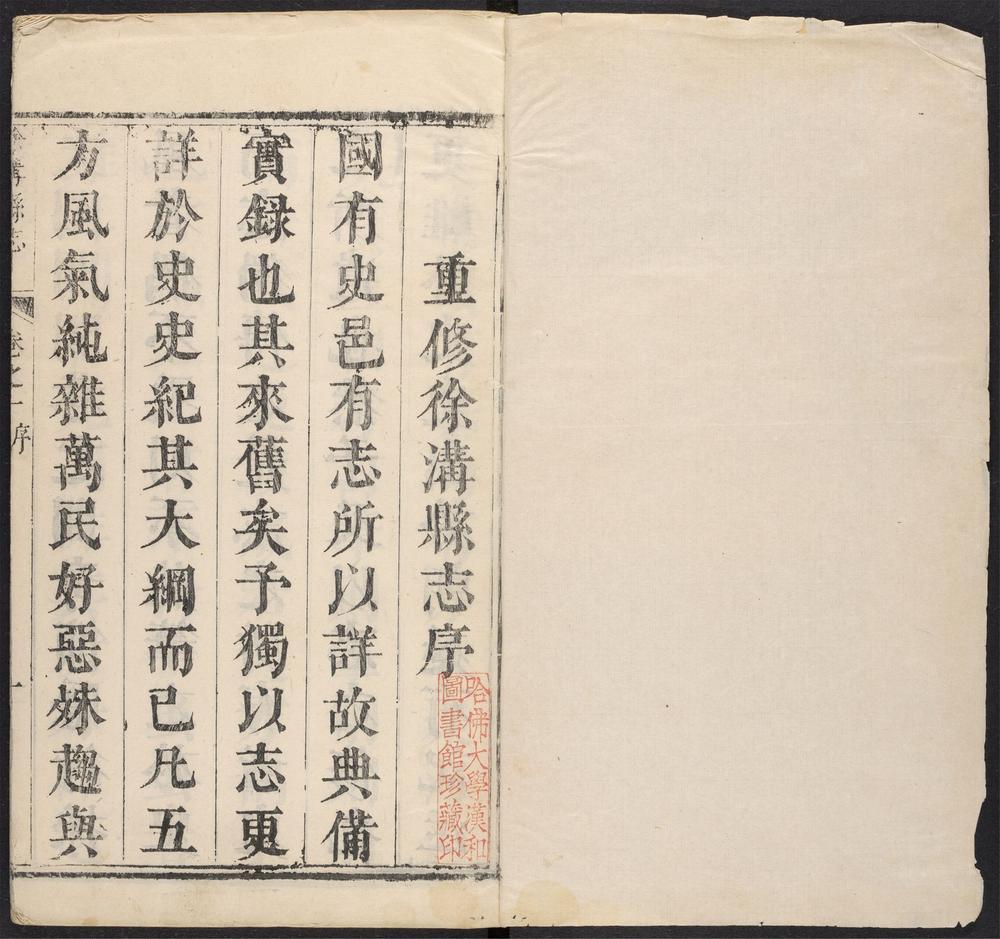 重修徐溝縣志序
國有史邑有志所以詳故典備
實録也其來舊矣予獨以志更
詳於史史紀其大綱而已凡五
方風氣純雜萬民好惡殊趨與
哈佛大學漢和
圖書館珍藏印
溝縣志
卷之一
序
一